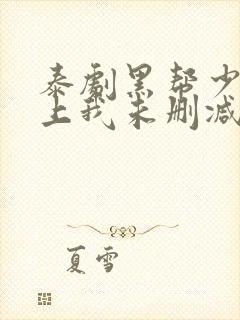 泰劇黑帮少
上我未删减
夏雪